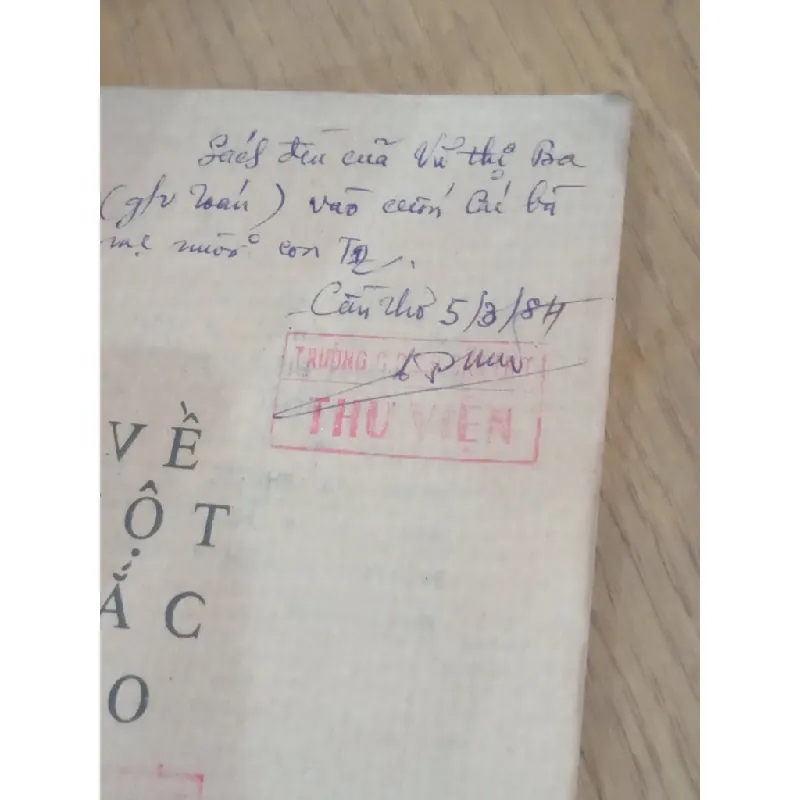 Sách đền của Vũ thị Ba
(g/v toán) vào cuốn Cái bà
mẹ nuôi con TQ.
Cần thơ 5/3/84
TRƯỜNG
THƯ VIỆN
VỀ
ỘT
ẮC
O